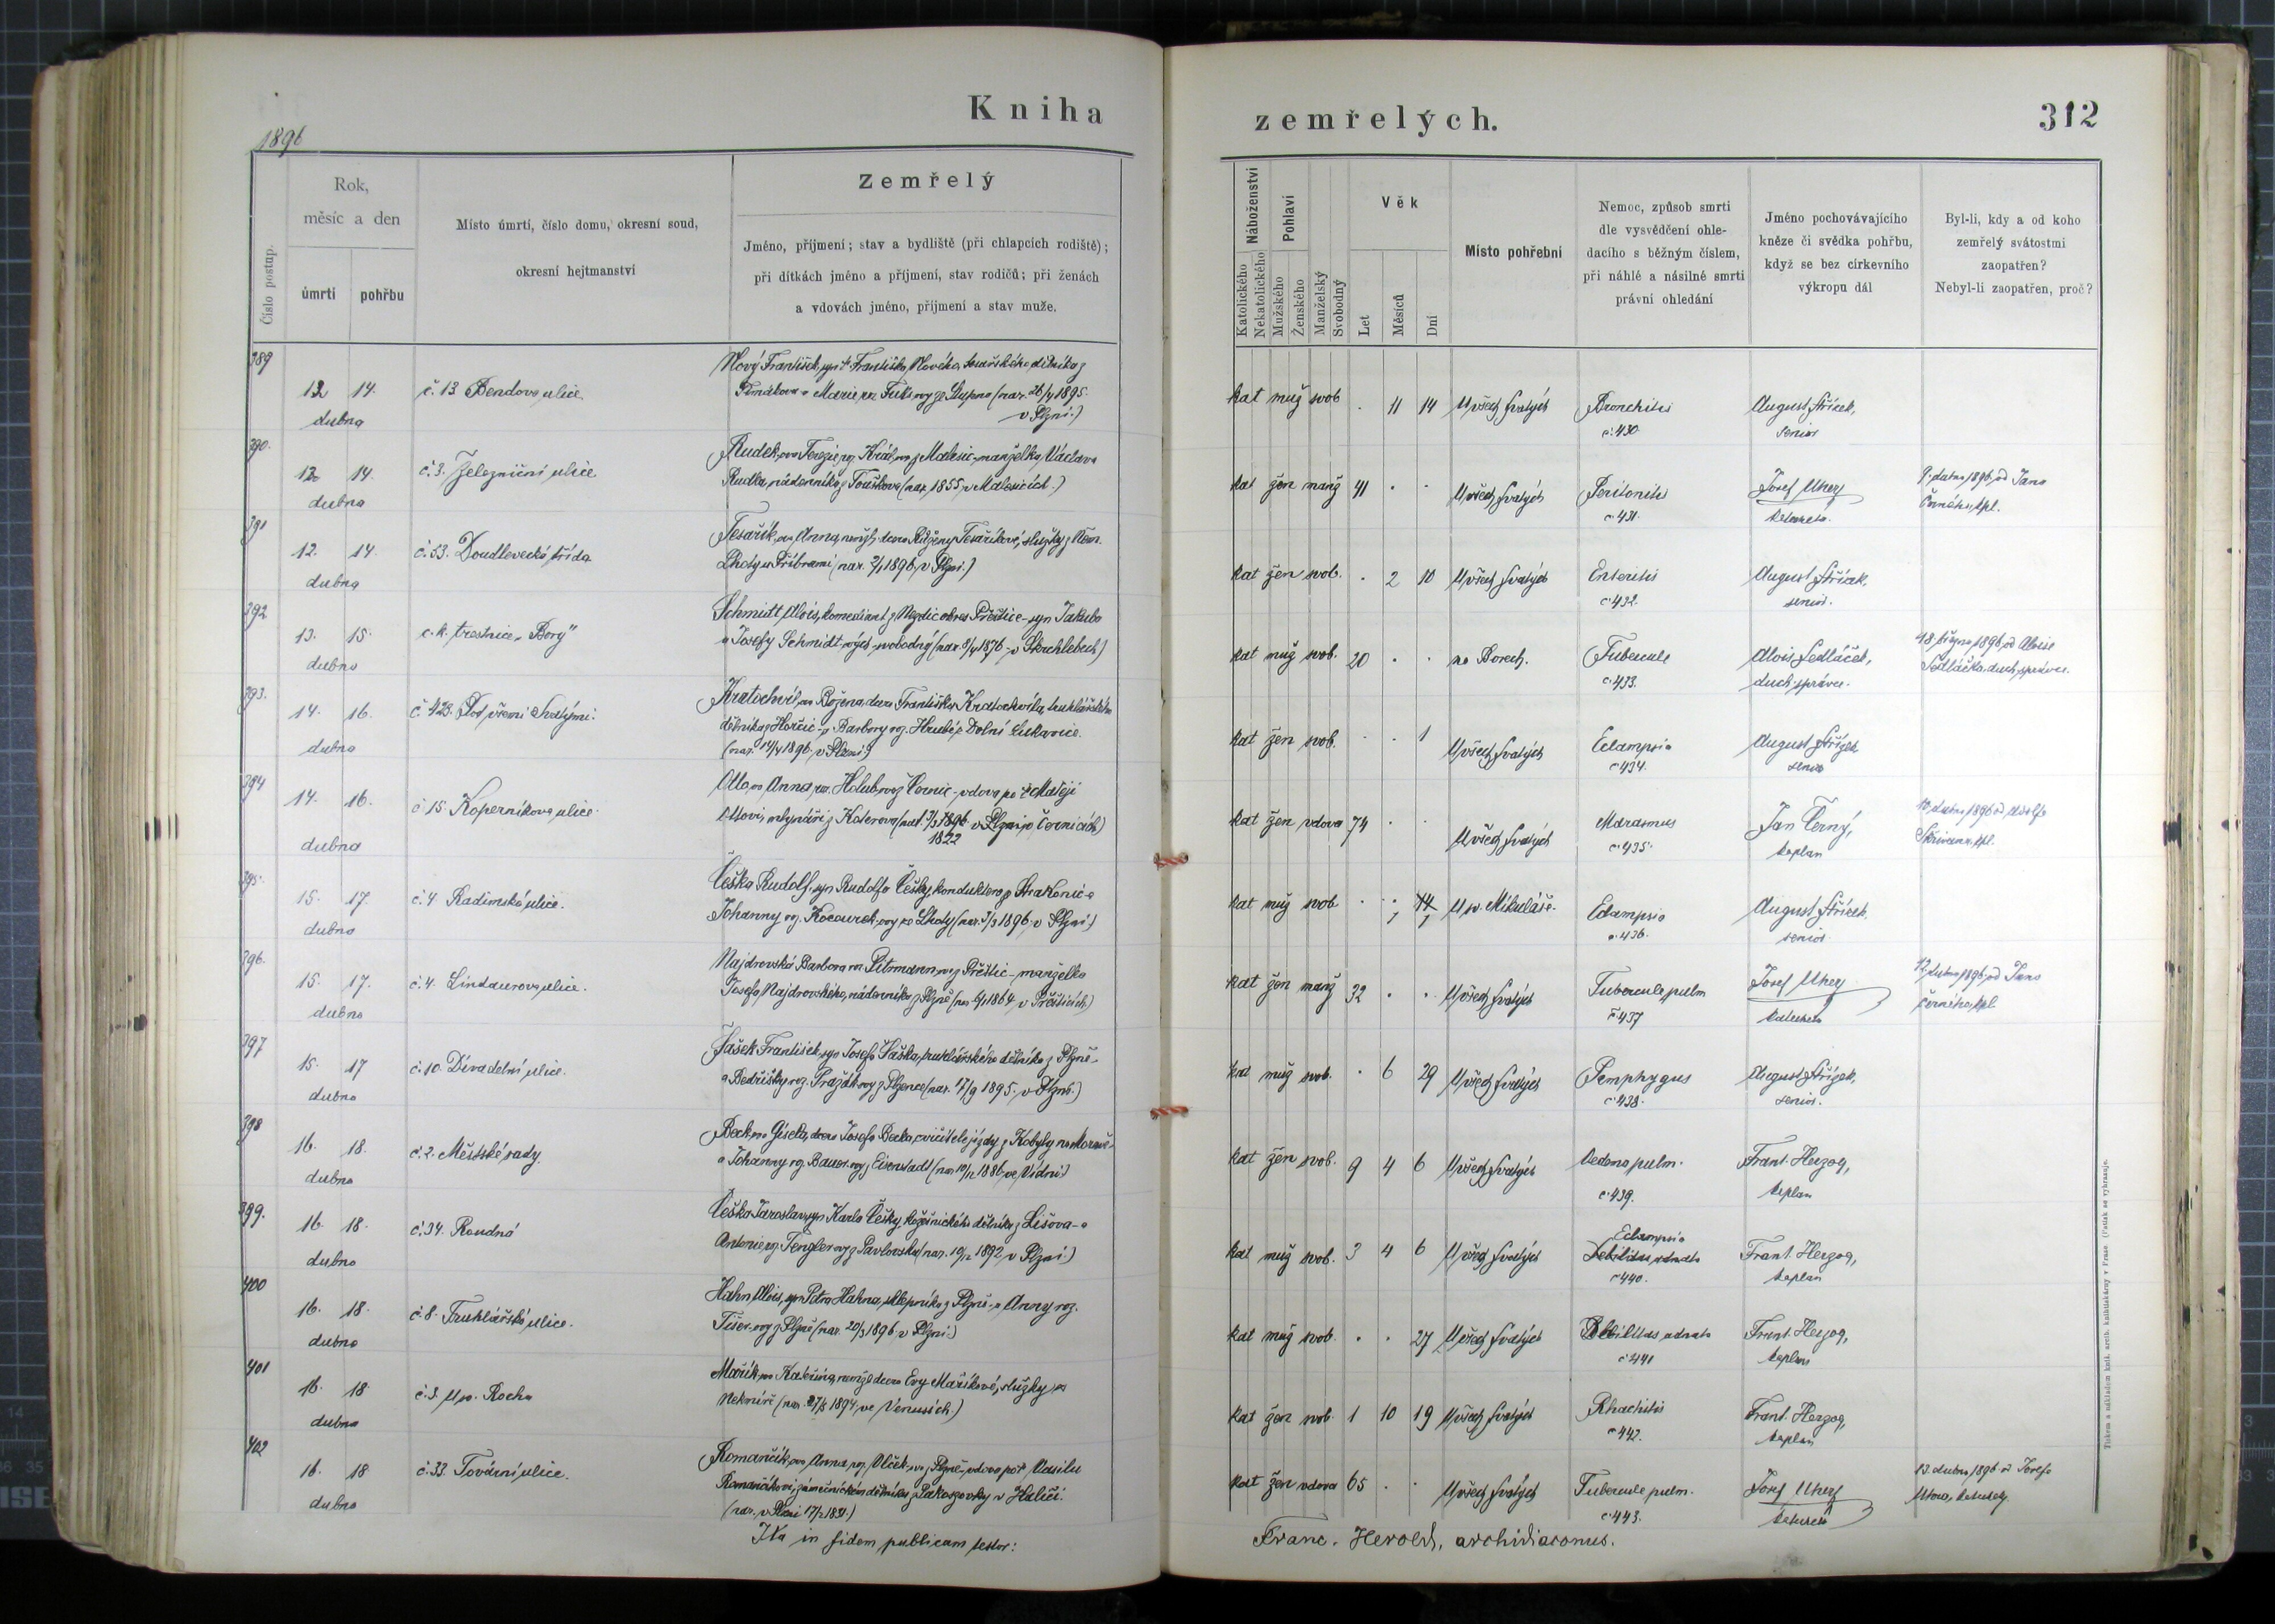 Kniha
1896
Číslo postup.
Rok,
měsíc a den
úmrtí
pohřbu
Místo úmrtí, číslo domu, okresní soud,
okresní hejtmanství
Zemřelý
Jméno, příjmení; stav a bydliště (při chlapcích rodiště);
při dítkách jméno a příjmení, stav rodičů; při ženách
a vdovách jméno, příjmení a stav muže.
389
12 14.
dubna
č. 13 Bendova ulice
Nový František, syn † Františka Nového, dělníka z
a Marie, roz. (nar. 26/4 1895.
v Plzni.)
390.
12. 14.
dubna
č. 3. Železniční ulice
Rudek, ova Terezie, roz. Král, z Malesic, manželka Václava
Rudka, nádenníka z Touškova (nar. 1855, v Malesicích.)
391
12. 14.
dubna
č. 53. Doudlevecká třída
Tesařík, ova Anna, dcera Růženy Tesaříkové, služky z Něm.
Lhoty u Příbrami (nar. 2/1 1896, v Plzni.)
392
13. 15.
dubna
c. k. trestnice „Bory"
Schmidt Alois, komediant z okres Přeštice - syn Jakuba
a Josefy Schmidt svobodný (nar. 1876 v
393.
14. 16.
dubna
č. 428. Pod všemi Svatými.
Kratochvíl, ova Božena, dcera Františka Kratochvíla, truhlářského
dělníka z Horšic a Barbory roz. Hrubé z Dolní Lukavice.
(nar. 14/4 1896. v Plzni.)
394
14. 16.
dubna
č. 15. Koperníkova ulice.
Otto, ova Anna, roz. Holub, z Černic - vdova po † Matěji
Ottovi, mlynáři z Koterova (nar. 1896 v Plzni, v Černicích)
1822
395.
15. 17.
dubna
č. 4 Radimská ulice.
Češka Rudolf, syn Rudolfa Češky, konduktora z Strakonic a
Johanny roz. Kocourek, ze Lhoty (nar. 1/3 1896. v Plzni.)
396.
15. 17.
dubna
č. 4. Lindaurova ulice.
Najdrovská Barbora roz. Pitrmann, z Přeštic - manželka
Josefa Najdrovského, nádenníka z Plzně (nar. 1864 v Přešticích)
397
15. 17
dubna
č. 10. Divadelní ulice.
Šašek František, syn Josefa Šaška, truhlářského dělníka z Plzně -
a Bedřišky roz. z Plzence (nar. 17/9 1895. v Plzni.)
398
16. 18.
dubna
č. 2. Městské sady.
Beck, ova Gisela, dcera Josefa Becka, cvičitele jízdy z Kobyly na Moravě -
a Johanny roz. Bauer z Eisenstadt (nar. 10/12 1886 ve Vídni)
399.
16. 18.
dubna
č. 34. Roudná
Češka Jaroslav, syn Karla Češky, dělníka z Lišova - a
Antonie roz. Tengler z Pavlovska (nar. 10/12 1892, v Plzni.)
400
16. 18.
dubna
č. 8. Truhlářská ulice.
Hahn Alois, syn Petra Hahna, sklepníka z Plzně - a Anny roz.
Tišer z Plzně (nar. 20/3 1896. v Plzni.)
401
16. 18
dubna
č. 3. U sv. Rocha
Mařík, ova Kateřina, dcera Evy Maříkové, služky z
Nekmíře (nar. 27/5 1894, ve
402
16. 18
dubna
č. 33. Tovární ulice.
Romančík, ova Anna, roz. Vlček, z Plzně - vdova po † Vasilu
Romančíkovi, zámečnickém dělníku z v Haliči.
(nar. v Plzni 17/2 1831.)
Ita in fidem publicam testor:
zemřelých.
312
Náboženství
Katolického
Nekatolického
Pohlaví
Mužského
Ženského
Manželský
Svobodný
Věk
Let
Měsíců
Dní
Místo pohřební
Nemoc, způsob smrti
dle vysvědčení ohle-
dacího s běžným číslem,
při náhlé a násilné smrti
právní ohledání
Jméno pochovávajícího
kněze či svědka pohřbu,
když se bez církevního
výkropu dál
Byl-li, kdy a od koho
zemřelý svátostmi
zaopatřen?
Nebyl-li zaopatřen, proč?
kat muž svob . 11 14 U všech Svatých Bronchitis August Střízek,
č. 430. senior
kat žen manž 41 . . U všech Svatých Peritonitis Josef Uherz 9. dubna 1896, od Jana
č. 431. katecheta. Černého, kpl.
kat žen svob. . 2 10 U všech Svatých Enteritis August Střízek,
č. 432. senior.
kat muž svob. 20 . . na Borech. Tubercule Alois Sedláček, 18. března 1896, od Aloise
č. 433. duch. správce. Sedláčka, duch. správce.
kat žen svob. . . 1 U všech Svatých Eclampsia August Střízek
č. 434. senior
kat žen vdova 74 . . U všech Svatých Marasmus Jan Černý, 10. dubna 1896 od Adolfa
č. 435. kaplan Skřivana, kpl.
kat muž svob. . 1 14 U sv. Mikuláše. Eclampsia August Střízek
č. 436. senior.
kat žen manž 32 . . U všech Svatých Tubercule pulm Josef Uherz 12. dubna 1896, od Jana
č. 437 katecheta Černého, kpl.
kat muž svob. . 6 29 U všech Svatých Pemphygus August Střízek,
č. 438. senior.
kat žen svob. 9 4 6 U všech Svatých Oedema pulm. Frant. Herzog,
č. 439. kaplan
Eclampsia
kat muž svob. 3 4 6 U všech Svatých Frant. Herzog,
č. 440. kaplan
kat muž svob. . . 27 U všech Svatých Debilitas adnata Frant. Herzog,
č. 441 kaplan
kat žen svob. 1 10 19 U všech Svatých Rhachitis Frant. Herzog,
č. 442. kaplan
kat žen vdova 65 . . U všech Svatých Tubercule pulm. Josef Uherz 13. dubna 1896 od Josefa
č. 443. katecheta
Franc. Herold, archidiaconus.
Tiskem a nákladem knih. arcib. knihtiskárny v Praze. (Patisk se vyhrazuje.